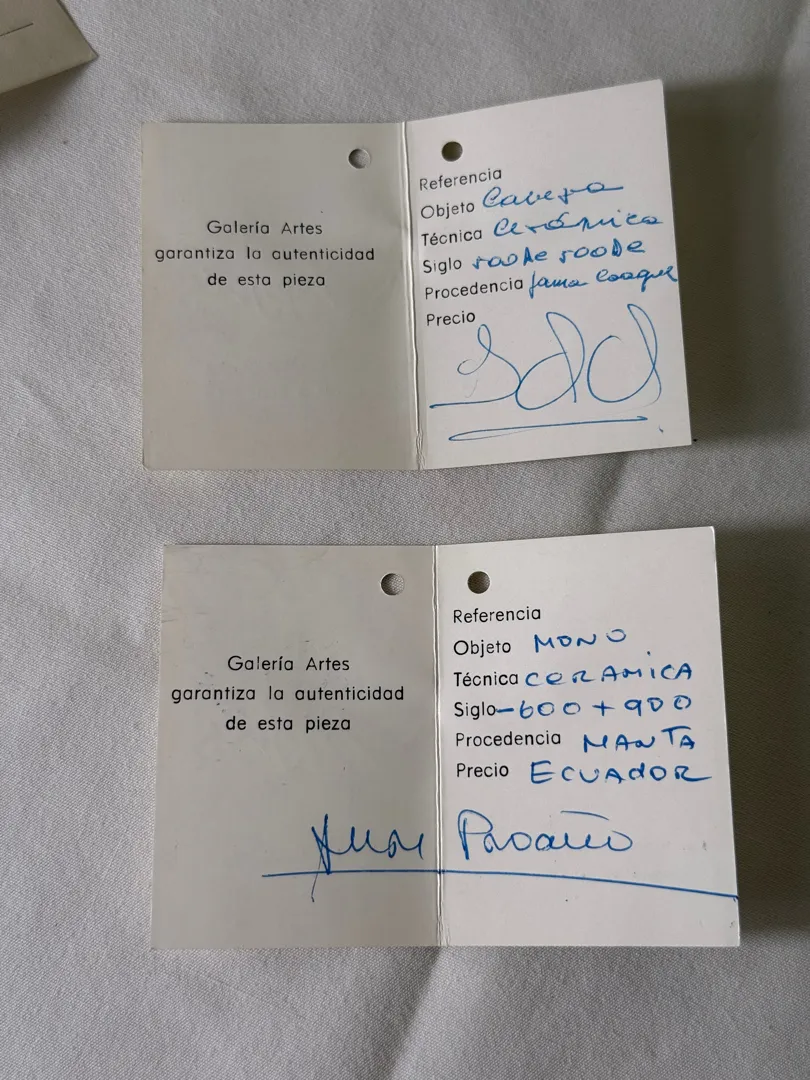 Galería Artes
garantiza la autenticidad
de esta pieza
Referencia
Objeto Cabeza
Técnica Cerámica
Siglo 500 A de 500 De
Procedencia Jama Coaque
Precio
Galería Artes
garantiza la autenticidad
de esta pieza
Referencia
Objeto MONO
Técnica CERAMICA
Siglo -600 + 900
Procedencia MANTA
Precio ECUADOR